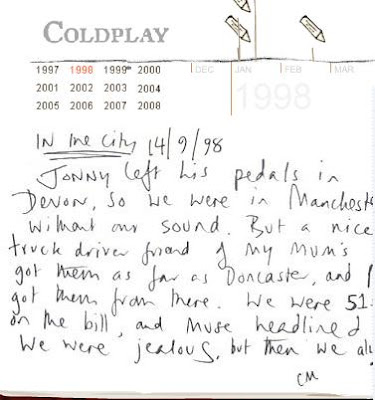 COLDPLAY
1997 1998 1999 2000
2001 2002 2003 2004
2005 2006 2007 2008
DEC JAN FEB MAR
1998
IN the City 14/9/98
JONNY left his pedals in
DEVON, so we were in Manchest
without our sound. But a nice
truck driver friend of my mum's
got them as far as Doncaster, and I
got them from there. We were 51
on the bill, and Muse headlined
We were jealous, but then we al
CM